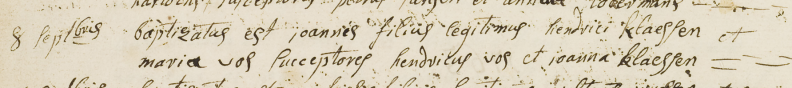 susceptores petrus jansen et anna
8 septbris baptizatus est joannes filius legitimus hendrici klaessen et
maria vos susceptores hendricus vos et joanna klaessen